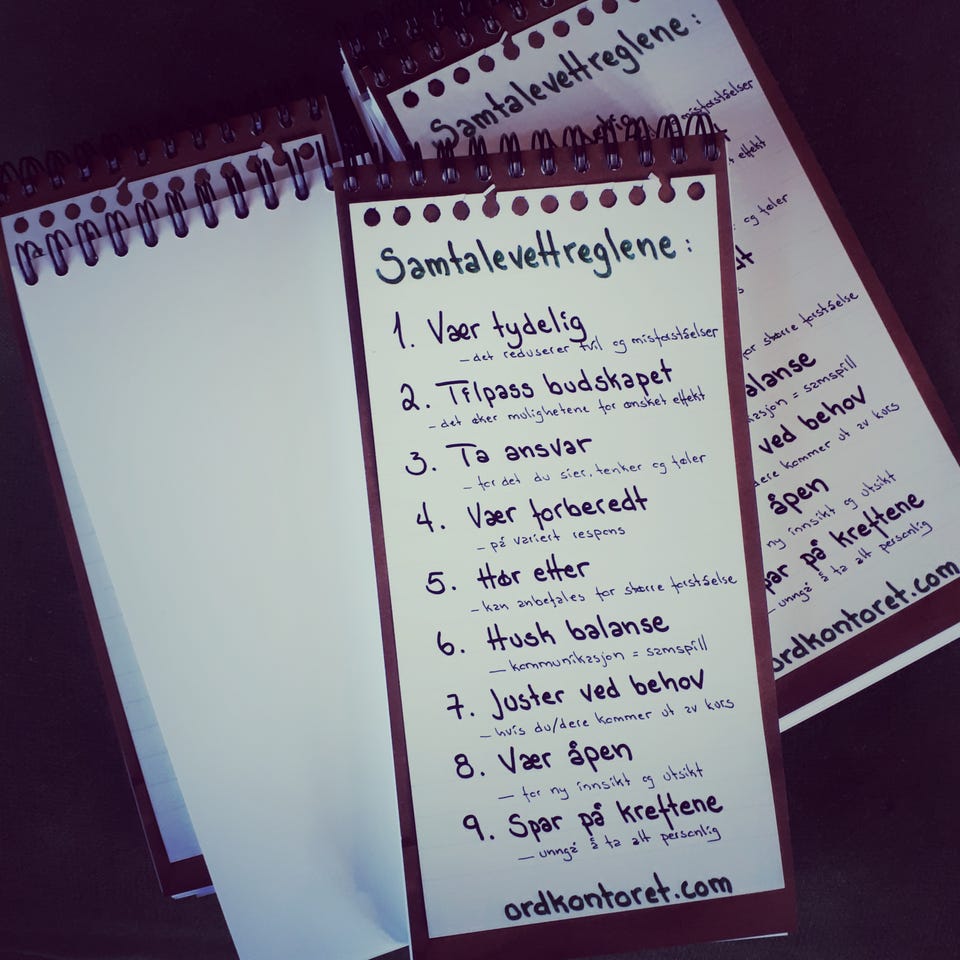 Samtalevettreglene:
1. Vær tydelig
- det reduserer tvil og misforståelser
2. Tilpass budskapet
- det øker mulighetene for ønsket effekt
3. Ta ansvar
- for det du sier, tenker og føler
4. Vær forberedt
- på variert respons
5. Hør etter
- kan anbefales for større forståelse
6. Husk balanse
- kommunikasjon = samspill
7. Juster ved behov
- hvis du/dere kommer ut av kurs
8. Vær åpen
- for ny innsikt og utsikt
9. Spar på kreftene
- unngå å ta alt personlig
ordkontoret.com
Samtalevettreglene:
misforståelser
effekt
og føler
for større forståelse
balanse
= samspill
ved behov
kommer ut av kurs
åpen
ny innsikt og utsikt
på kreftene
- unngå å ta alt personlig
ordkontoret.com